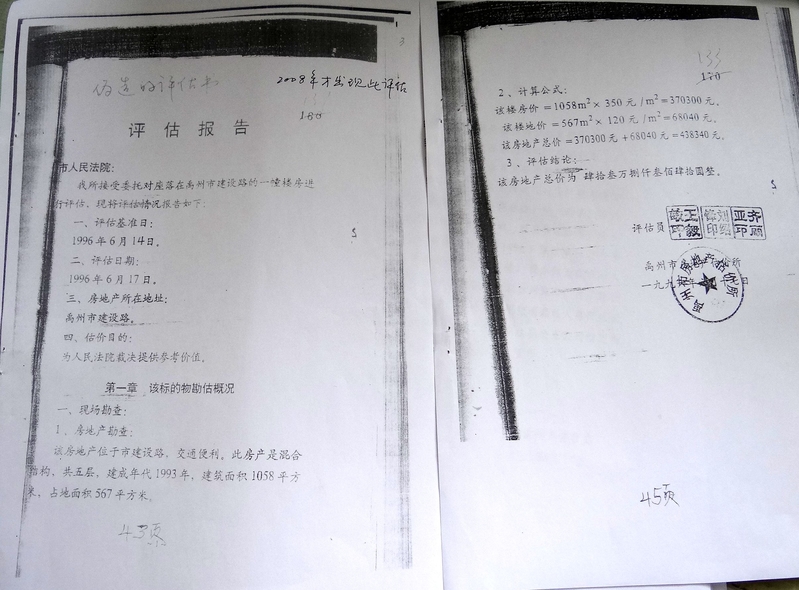 3
伪造的评估书
2008年才出现此评估
131
180
评估报告
市人民法院：
我所接受委托对座落在禹州市建设路的一幢楼房进
行评估、现将评估情况报告如下：
一、评估基准日：
1996年6月14日。
二、评估日期：
1996年6月17日。
三、房地产所在地址：
禹州市建设路。
四、估价目的：
为人民法院裁决提供参考价值。
第一章 该标的物勘估概况
一、现场勘查：
1、房地产勘查：
该房地产位于市建设路，交通便利。此房产是混合
结构，共五层，建成年代1993年，建筑面积1058平方
米，占地面积567平方米。
43页
133
2、计算公式：
该楼房价＝1058m²×350元/m²=370300元。
该楼地价＝567m²×120元/m²=68040元。
该房地产总价=370300元+68040元=438340元。
3、评估结论：
该房地产总价为 肆拾叁万捌仟叁佰肆拾圆整。
评估员
禹州市房地产评估所
一九九
日
45页